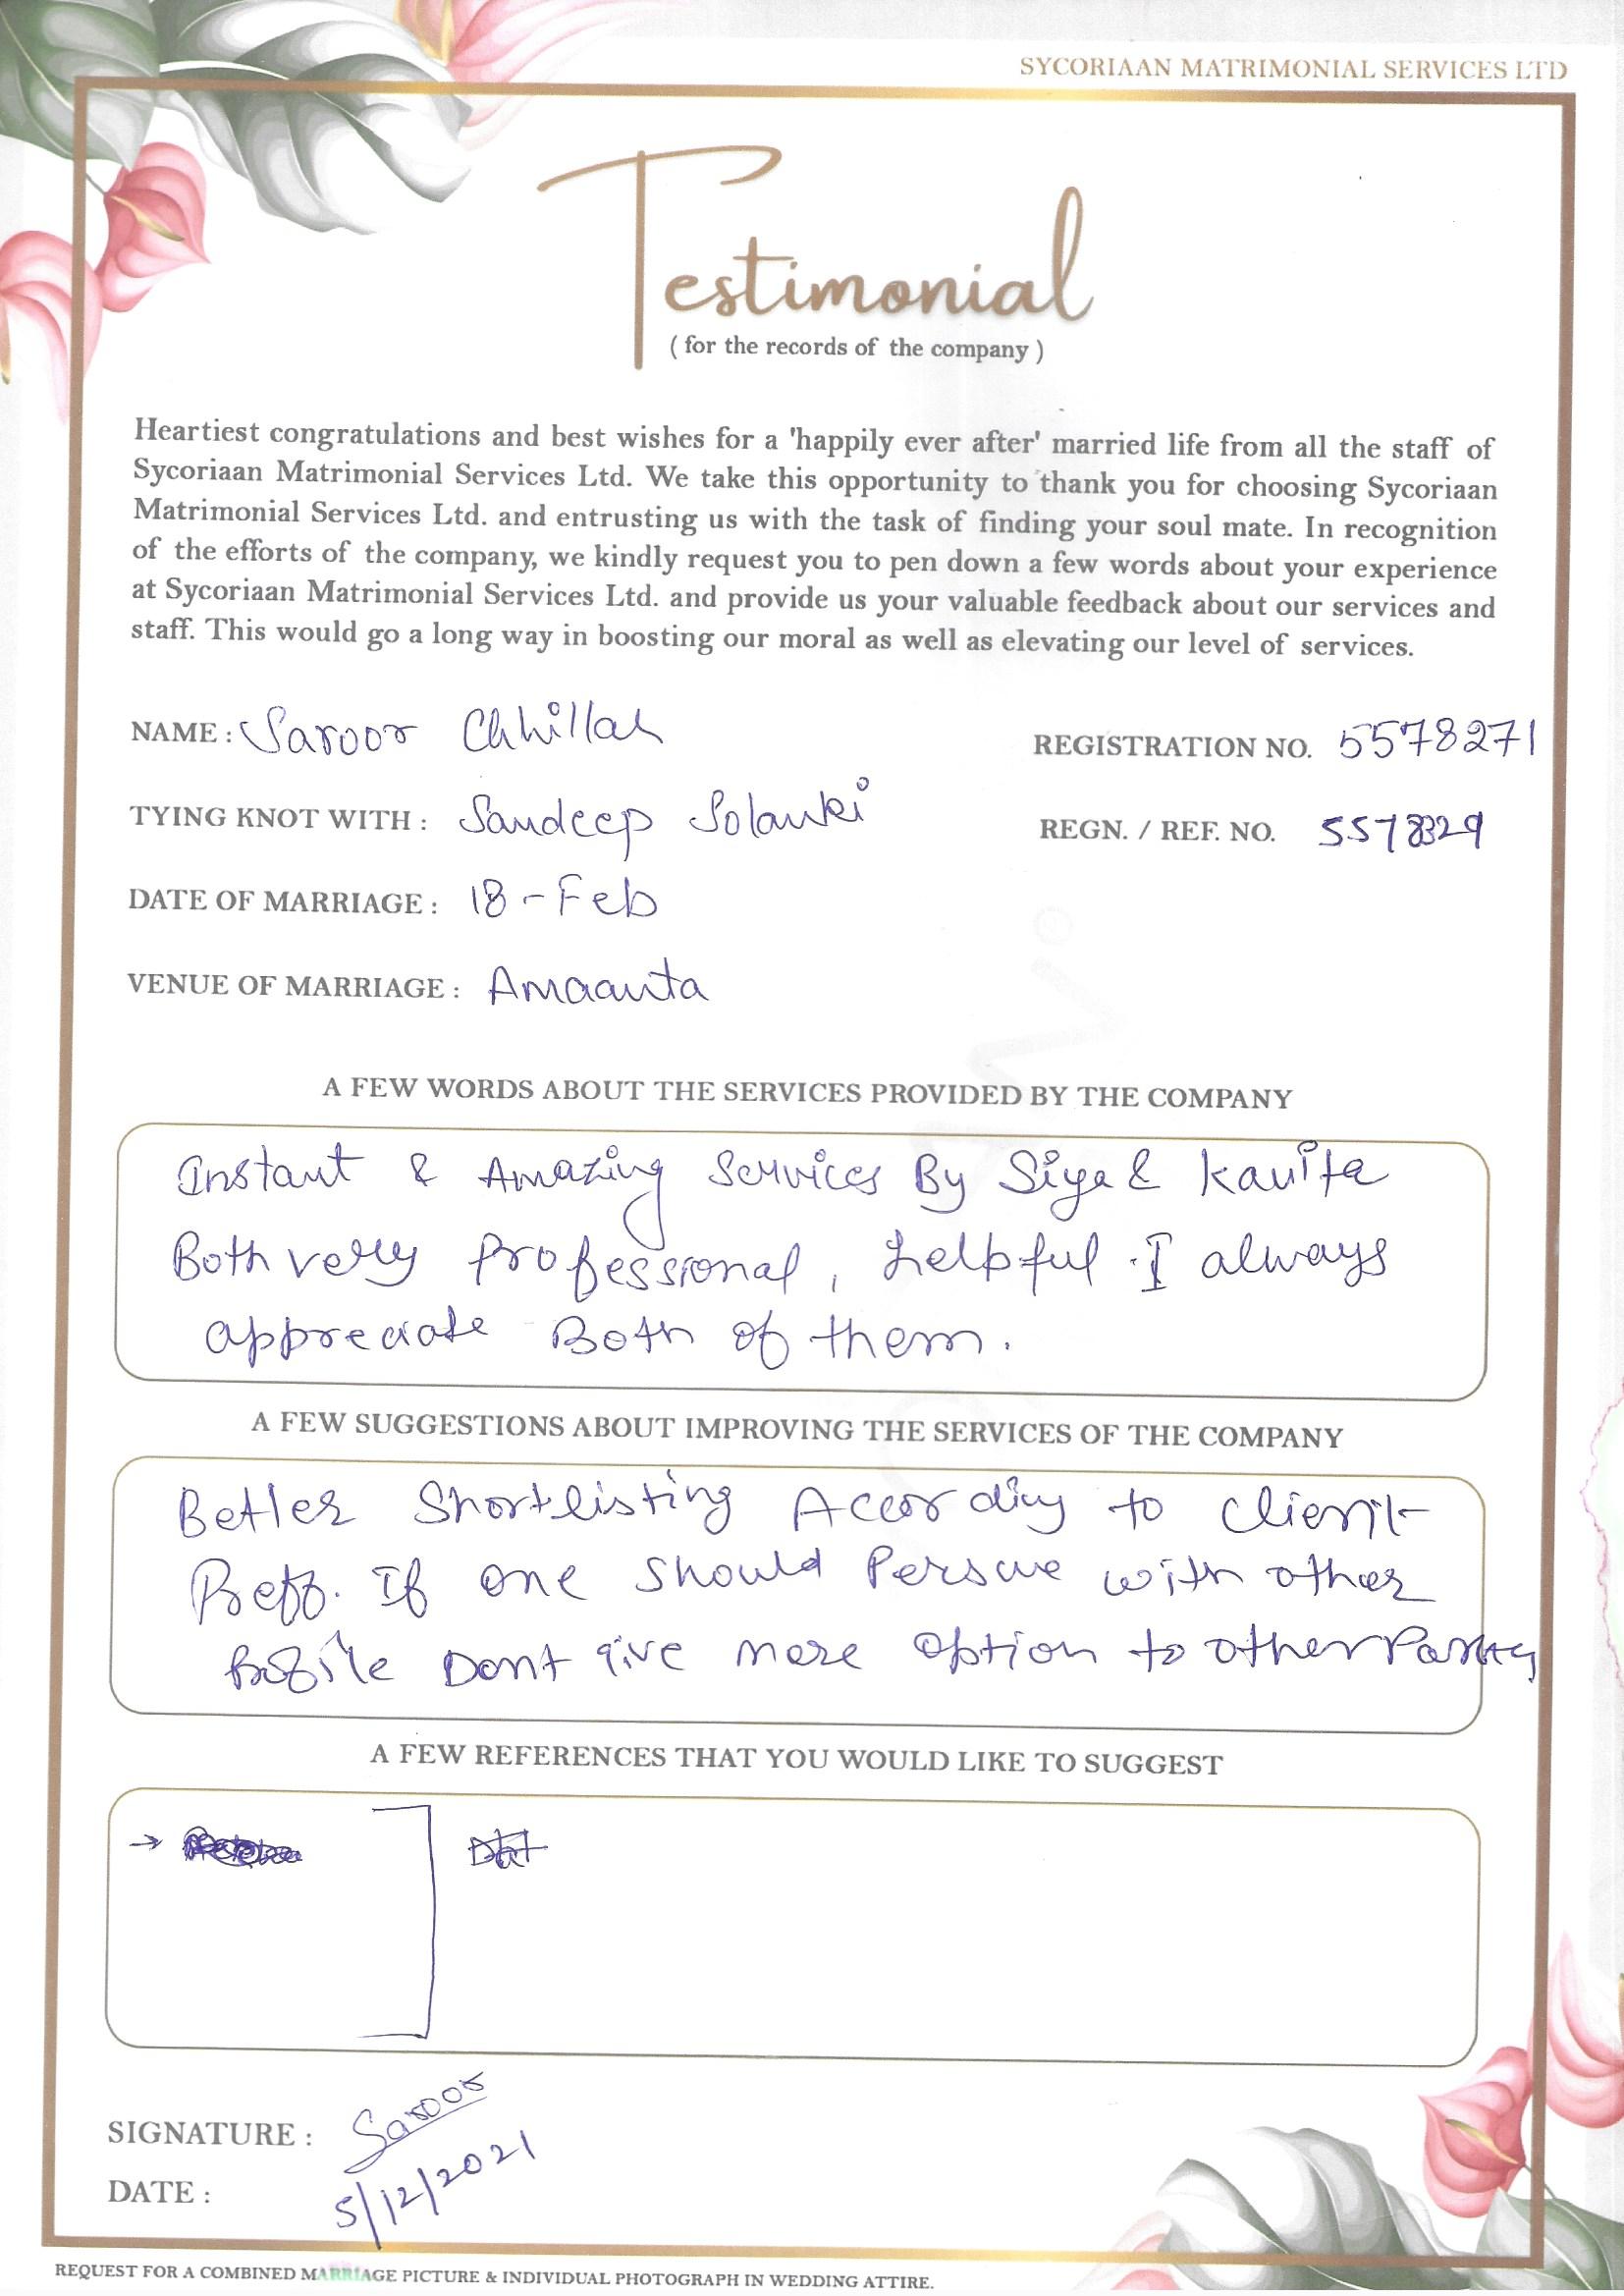 SYCORIAAN MATRIMONIAL SERVICES LTD
Testimonial
( for the records of the company )
Heartiest congratulations and best wishes for a 'happily ever after' married life from all the staff of
Sycoriaan Matrimonial Services Ltd. We take this opportunity to thank you for choosing Sycoriaan
Matrimonial Services Ltd. and entrusting us with the task of finding your soul mate. In recognition
of the efforts of the company, we kindly request you to pen down a few words about your experience
at Sycoriaan Matrimonial Services Ltd. and provide us your valuable feedback about our services and
staff. This would go a long way in boosting our moral as well as elevating our level of services.
NAME : Saroor Chhillar REGISTRATION NO. 5578271
TYING KNOT WITH : Sandeep Solanki REGN. / REF. NO. 5578329
DATE OF MARRIAGE : 18-Feb
VENUE OF MARRIAGE : Amaanta
A FEW WORDS ABOUT THE SERVICES PROVIDED BY THE COMPANY
Instant & Amazing Services By Siya & Kavita
Both very Professional, helpful. I always
appreciate Both of them.
A FEW SUGGESTIONS ABOUT IMPROVING THE SERVICES OF THE COMPANY
Better Shortlisting According to Client
Preff. If one should Persue with other
Profile Dont give more option to other Party
A FEW REFERENCES THAT YOU WOULD LIKE TO SUGGEST
→
SIGNATURE : Saroor
DATE : 5/12/2021
REQUEST FOR A COMBINED MARRIAGE PICTURE & INDIVIDUAL PHOTOGRAPH IN WEDDING ATTIRE.